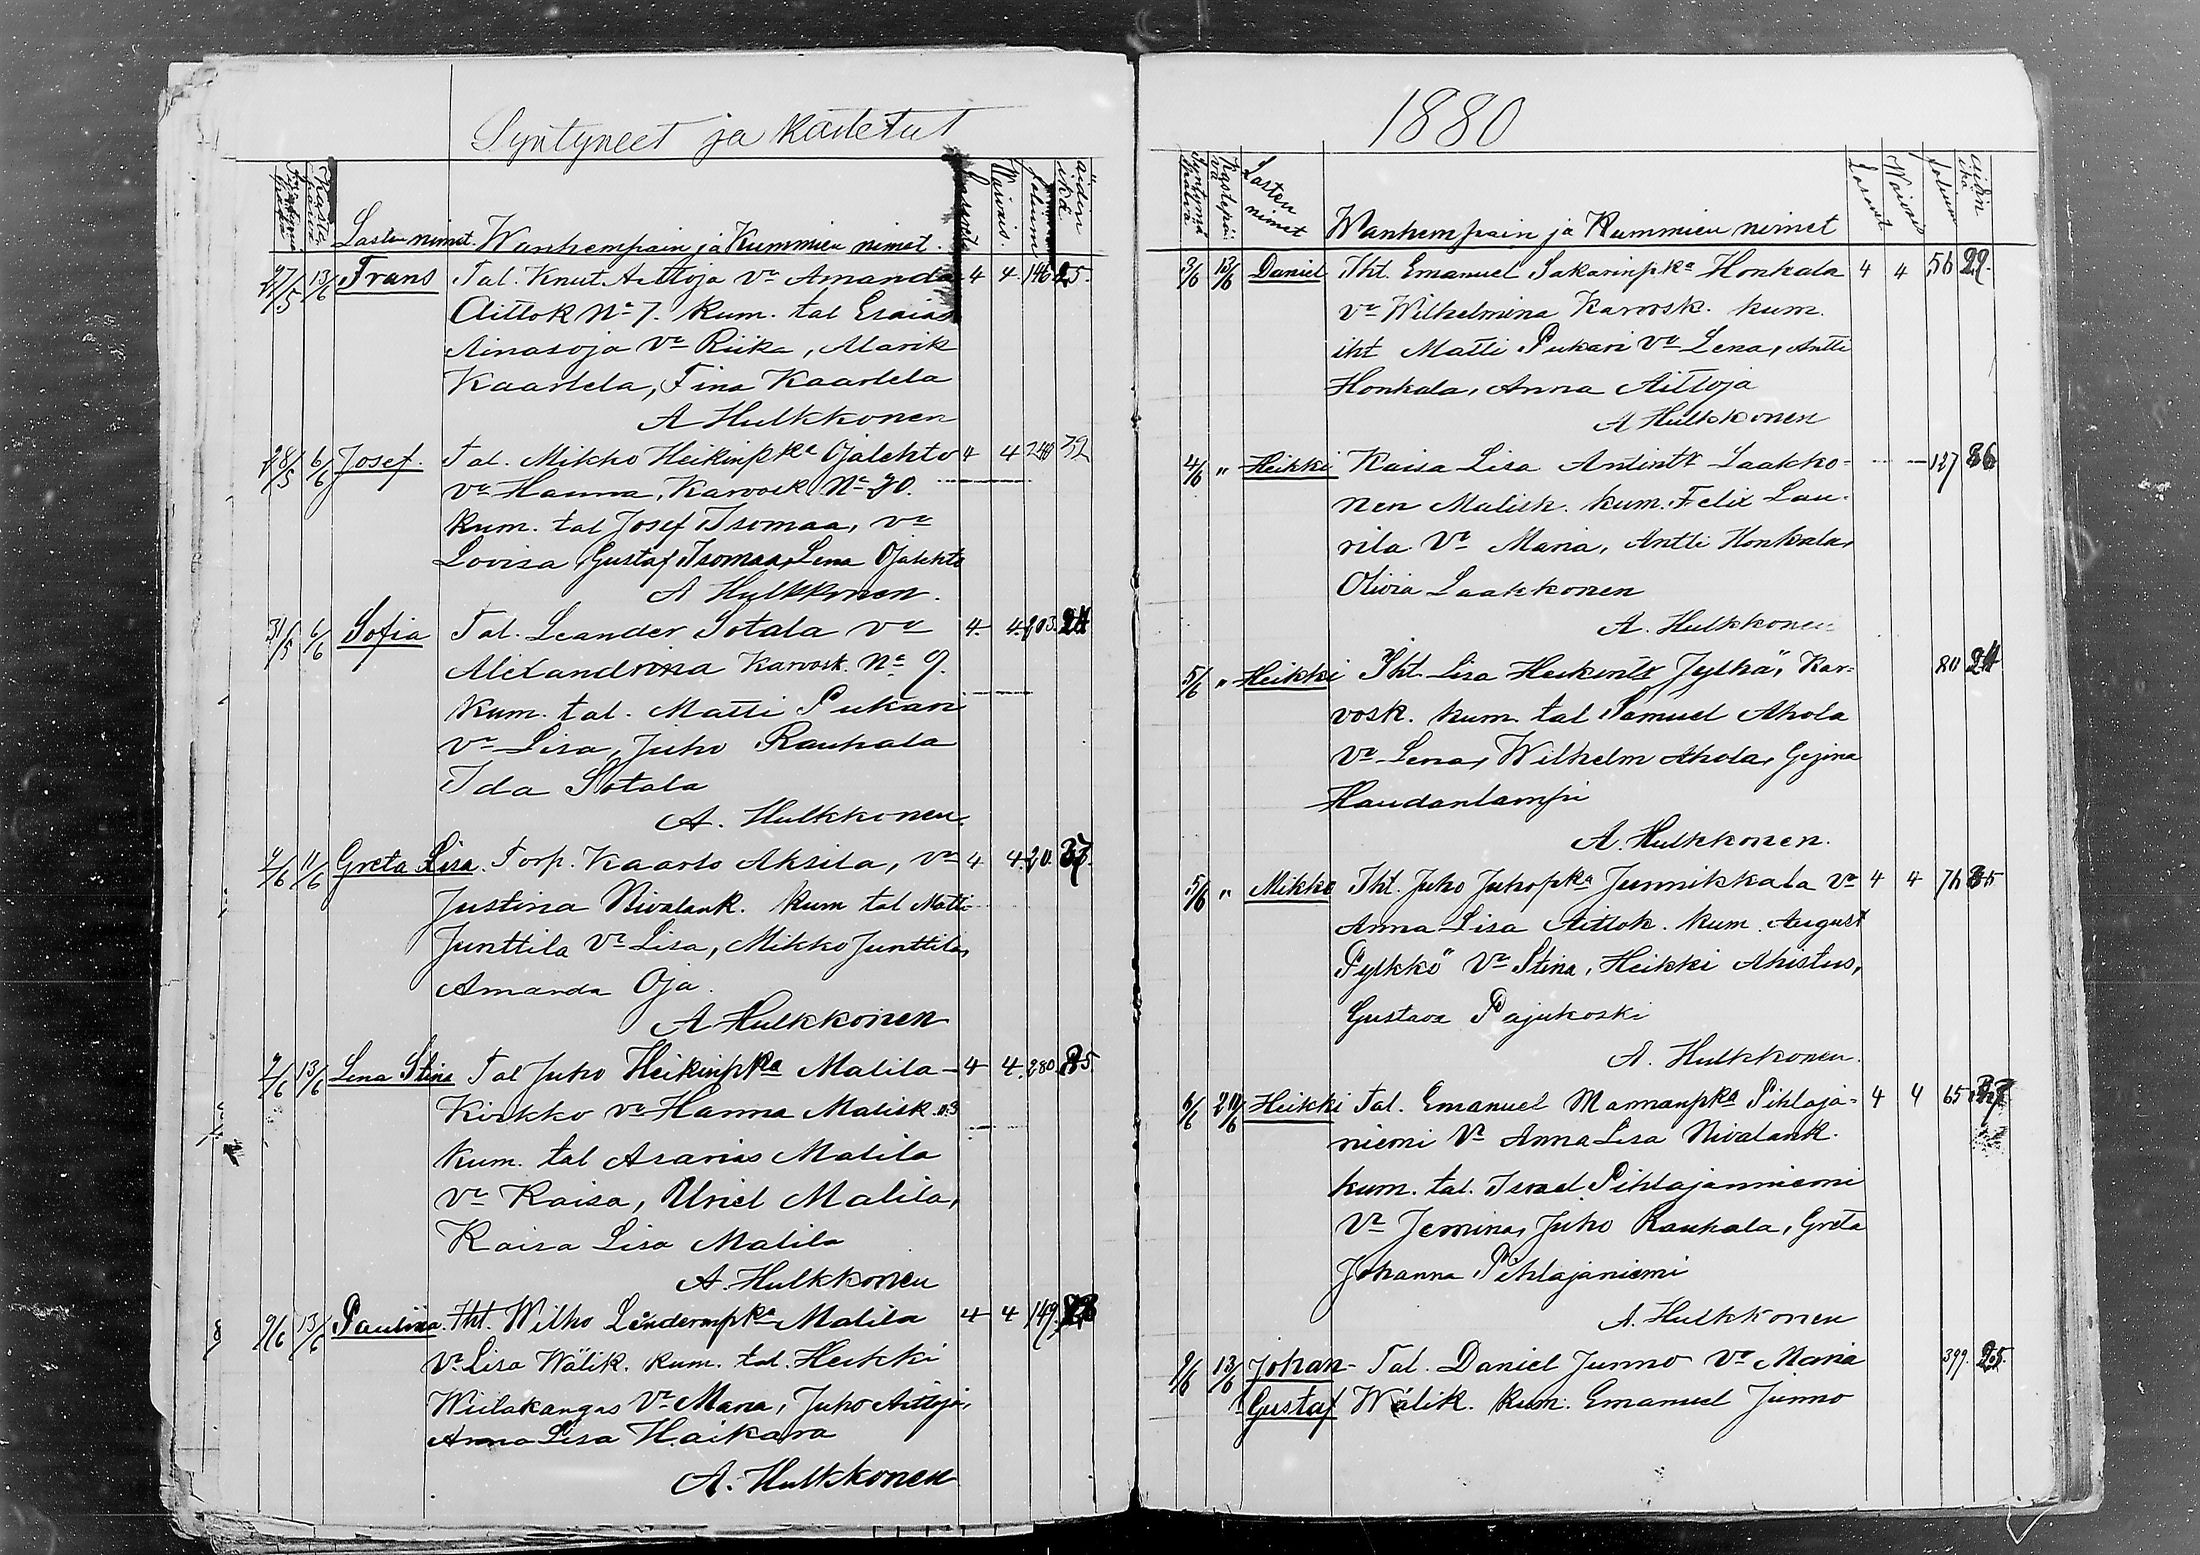 Syntyneet ja kastetut
Lasten nimet. Wanhempain ja Kummien nimet. Lasaret Warvais. folium äiden ikä
27/5 13/6 Frans Tal. Knut Aittoja Va Amanda 4 4. 146 25.
Aittok No 7. Kum. tal Esaias
Ainasoja Va Riika, Alarik
Kaarlela, Fina Kaarlela
A Hulkkonen
28/5 6/6 Josef. Tal. Mikko Heikinpka Ojalehto 4 4 248 32
Va Hanna, Karvosk No 20.
Kum. tal Josef Isomaa, va
Lovisa, Gustaf Isomaa, Lena Ojalehto
A Hulkkonen.
31/5 6/6 Sofia Tal. Leander Sotala Va 4. 4. 203. 24
Alexandrina Karvosk. No 9.
Kum. tal. Matti Pukari
Va Lisa, Juho Rauhala
Ida Sotala
A. Hulkkonen.
11/6 Greta Lisa. Torp. Kaarlo Aksila, Va 4 4. 20. 37.
Justina Nivalank. Kum tal Matti
Junttila Va Lisa, Mikko Junttila,
Amanda Oja.
A Hulkkonen
13/6 Lena Stina Tal Juho Heikinpka Malila- 4 4. 280. 25
Kirkko Va Hanna Malisk. n:3
Kum. tal Asarias Malila
Va Kaisa, Uriel Malila,
Kaisa Lisa Malila
A. Hulkkonen
9/6 13/6 Paulina. Iht. Wilho Leanderinpka Malila 4 4 149.
Va Lisa Wälik. Kum. tal. Heikki
Wiitakangas Va Maria, Juho Aittoja,
Anna Lisa Haikara
A. Hulkkonen
1880
Syntymä päivä Kastepäivä Lasten nimet Wanhempain ja Kummien nimet folium äitin ikä
3/6 13/6 Daniel Iht. Emanuel Sakarinpka Honkala 4 4 56 29.
Va Wilhelmina Karvosk. Kum.
iht Matti Pukari Va Lena, Antti
Honkala, Anna Aittoja
A Hulkkonen
4/6 " Heikki Kaisa Lisa Antintr Laakko= 127 36
nen Malisk. Kum. Felix Lau-
rila Va Maria, Antti Honkala,
Olivia Laakkonen
A. Hulkkonen
5/6 " Heikki Iht. Lisa Heikintr Jylhä, Kar= 80 24
vosk. Kum. tal Samuel Ahola
Va Lena, Wilhelm Ahola, Gezina
Haudanlampi
A. Hulkkonen.
5/6 " Mikko Iht. Juho Juhopka Junnikkala Va 4 4 76 35
Anna Lisa Aittok. Kum. August
Pylkkö Va Stina, Heikki Ahistus,
Gustava Pajukoski
A. Hulkkonen.
6/6 20/6 Heikki Tal. Emanuel Mannanpka Pihlaja= 4 4 65 37
niemi Va Anna Lisa Nivalank.
kum. tal. Israel Pihlajanniemi
Va Jemina, Juho Rauhala, Greta
Johanna Pihlajaniemi
A. Hulkkonen
9/6 13/6 Johan- Tal. Daniel Junno Va Maria 399. 25.
Gustaf Wälik. Kum. Emanuel Junno